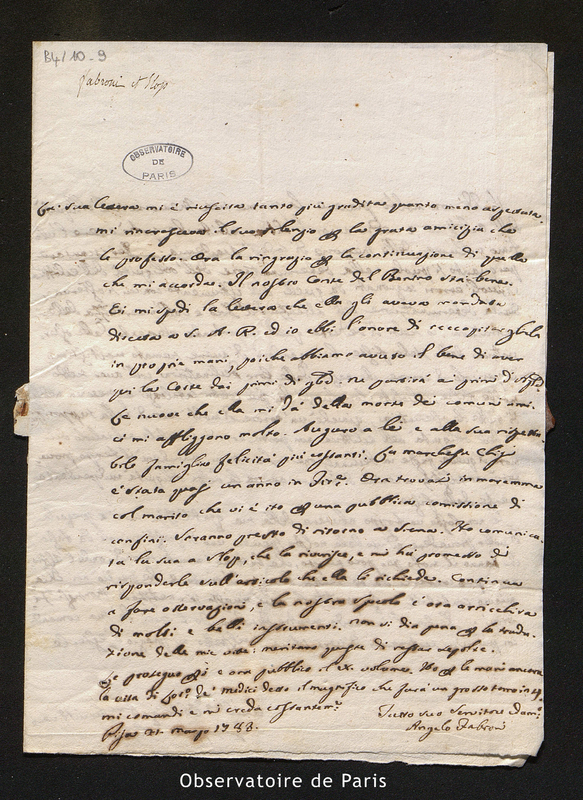 B4/10-9
Fabroni et Slop
OBSERVATOIRE
DE
PARIS
La sua lettera mi è riuscita tanto più gradita quanto meno aspettata.
mi rincresceva il suo silenzio per la grata amicizia che
le professo. Ora la ringrazio per la continuazione di quella
che mi accorda. Il nostro Conte del Benino sta bene.
Ei mi spedì la lettera che ella gli aveva mandata
diretta a S. A. R. ed io ebbi l'onore di
in propria mani, poiché abbiamo avuto il bene di aver
qui la Corte dai primi di ne partirà ai primi di
Le nuove che ella mi dà della morte de' comuni ami-
ci mi affliggono molto. Auguro a lei e alla sua rispetta
bile famiglia felicità più costanti. La marchesa Chigi
è stata quasi un anno in Ora trovasi in maremma
col marito che vi è ito per una pubblica comissione di
confini. Saranno presto di ritorno a Siena. Ho comunica-
ta la sua a Slop, che la riverisce, e mi ha promesso di
risponderle sull'articolo che ella li richiede. Continua
a fare osservazioni, e la nostra specola è ora arricchita
di molti e belli instrumenti. non si dia pena per la tradu-
zione delle mie vite: meritano purtroppo di restar sepolte.
Le proseguo però e ora pubblico il IX volume. Ho per le mani ancora
la vita di de' Medici detto il magnifico che farà un grosso tomo in 4.
mi comandi e mi creda costantem.e
Pisa 21. marzo 1783.
Tutto suo Servitore ed am.o
Angelo Fabroni
Observatoire de Paris